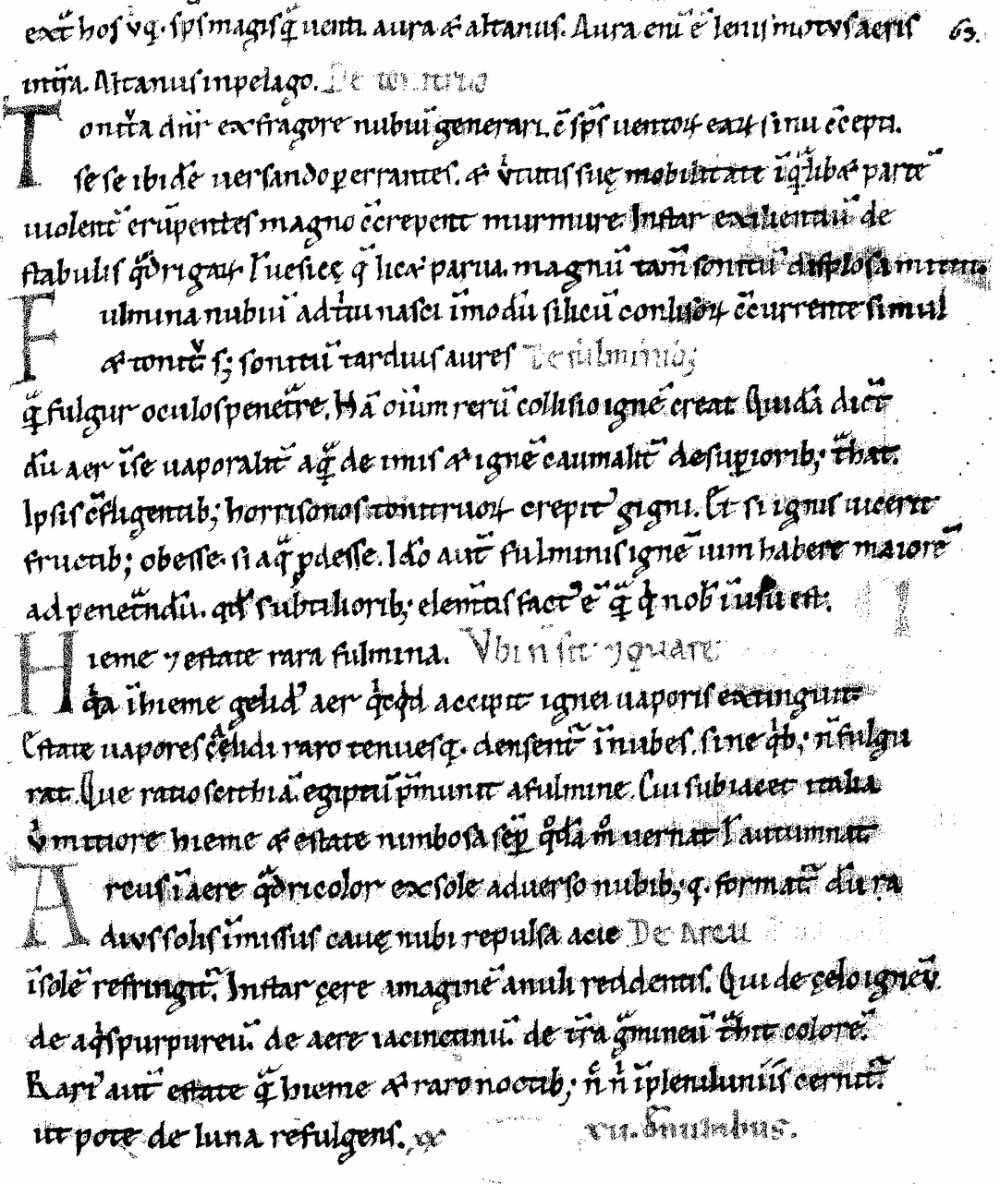 extͣ hos vq; sp̅s magisq̅ͣ uenti. aura & altanus. Aura eni̅ e̅ lenis motvs aeris 63.
intr̅a. Altanus in pelago. De tonitruo
Tonitr̅a dn̅r ex fragore nubiu̅ generari. c̅ sp̅s uentoꝝ eaꝝ sinu c̅cepti.
se se ibide̅ uersando ꝑerrantes. & v̍tutis suę mobilitate i̅ qͣ̅lib& parte̅
uiolent͛ eru̅pentes magno c̅crepent murmure. Instar exilientiu̅ de
stabulis qͣdrigaꝝ l̍ uesicę q̅ lic& parua. magnu̅ tam̅ sonitu̅ displosa mittit.
Fulmina nubiu̅ adt̍tu nasci i̅ modu̅ silicu̅ conlisoꝝ c̅currente simul
& tonitr̅v s; sonitu̅ tardius aures De fulminib;
qͣ̅ fulgur oculos penet̅re. Na̅ oi̅um reru̅ collisio igne̅ creat. Quida̅ dic̅t
du̅ aer i̅ se uaporalit͛ aqͣ̅ de imis & igne̅ caumalit͛ de supiorib; t̅hat.
Ipsis c̅fligentib; horrisonos tonitruoꝝ crepit᷒ gigni. Et si ignis uicerit
fructib; obesse. si aqͣ ꝓdesse. Ido̅ aut̅ fulminis igne̅ uim habere maiore̅
ad penet̅ndu̅. qd̅ subtiliorib; elem̅tis fact᷒ e̅ qͣ̅ q̍ nob̅ i̅ usu est.
Hieme ⁊ estate rara fulmina. Vbi n̅ sit ⁊ quare
q̍a i̅ hieme gelid᷒ aer q̍cq̍d accipit ignei uaporis extinguit
Estate uapores c̅elidi raro tenuesq; densent͛ i̅ nubes. sine q̍b; n̅ fulgu
rat. Que ratio scithia̅ egiptu̅ p̅munit a fulmine. Cui subiacet italia
v̍ mitiore hieme & estate nimbosa sep̅ qͦda̅ mͦ uernat l̍ autumnat
Arcus i̅ aere qͣdricolor ex sole aduerso nubib; q; format͛ du̅ ra
dius solis i̅missus cauę nubi repulsa acie De Arcu
i̅ sole̅ refringit͛. Instar cęre imagine̅ anuli reddentis. Qui de cęlo igneu̅.
de aq̍s purpureu̅. de aere iacinctinu̅. de tr̅a gͣmineu̅ t̅hit colore̅.
Rari᷒ aut̅ estate qͣ̅ hieme & raro noctib; n̅ n̍ i̅ pleniluniis cernit͛.
ut pote de luna refulgens. xii. De nubibus.